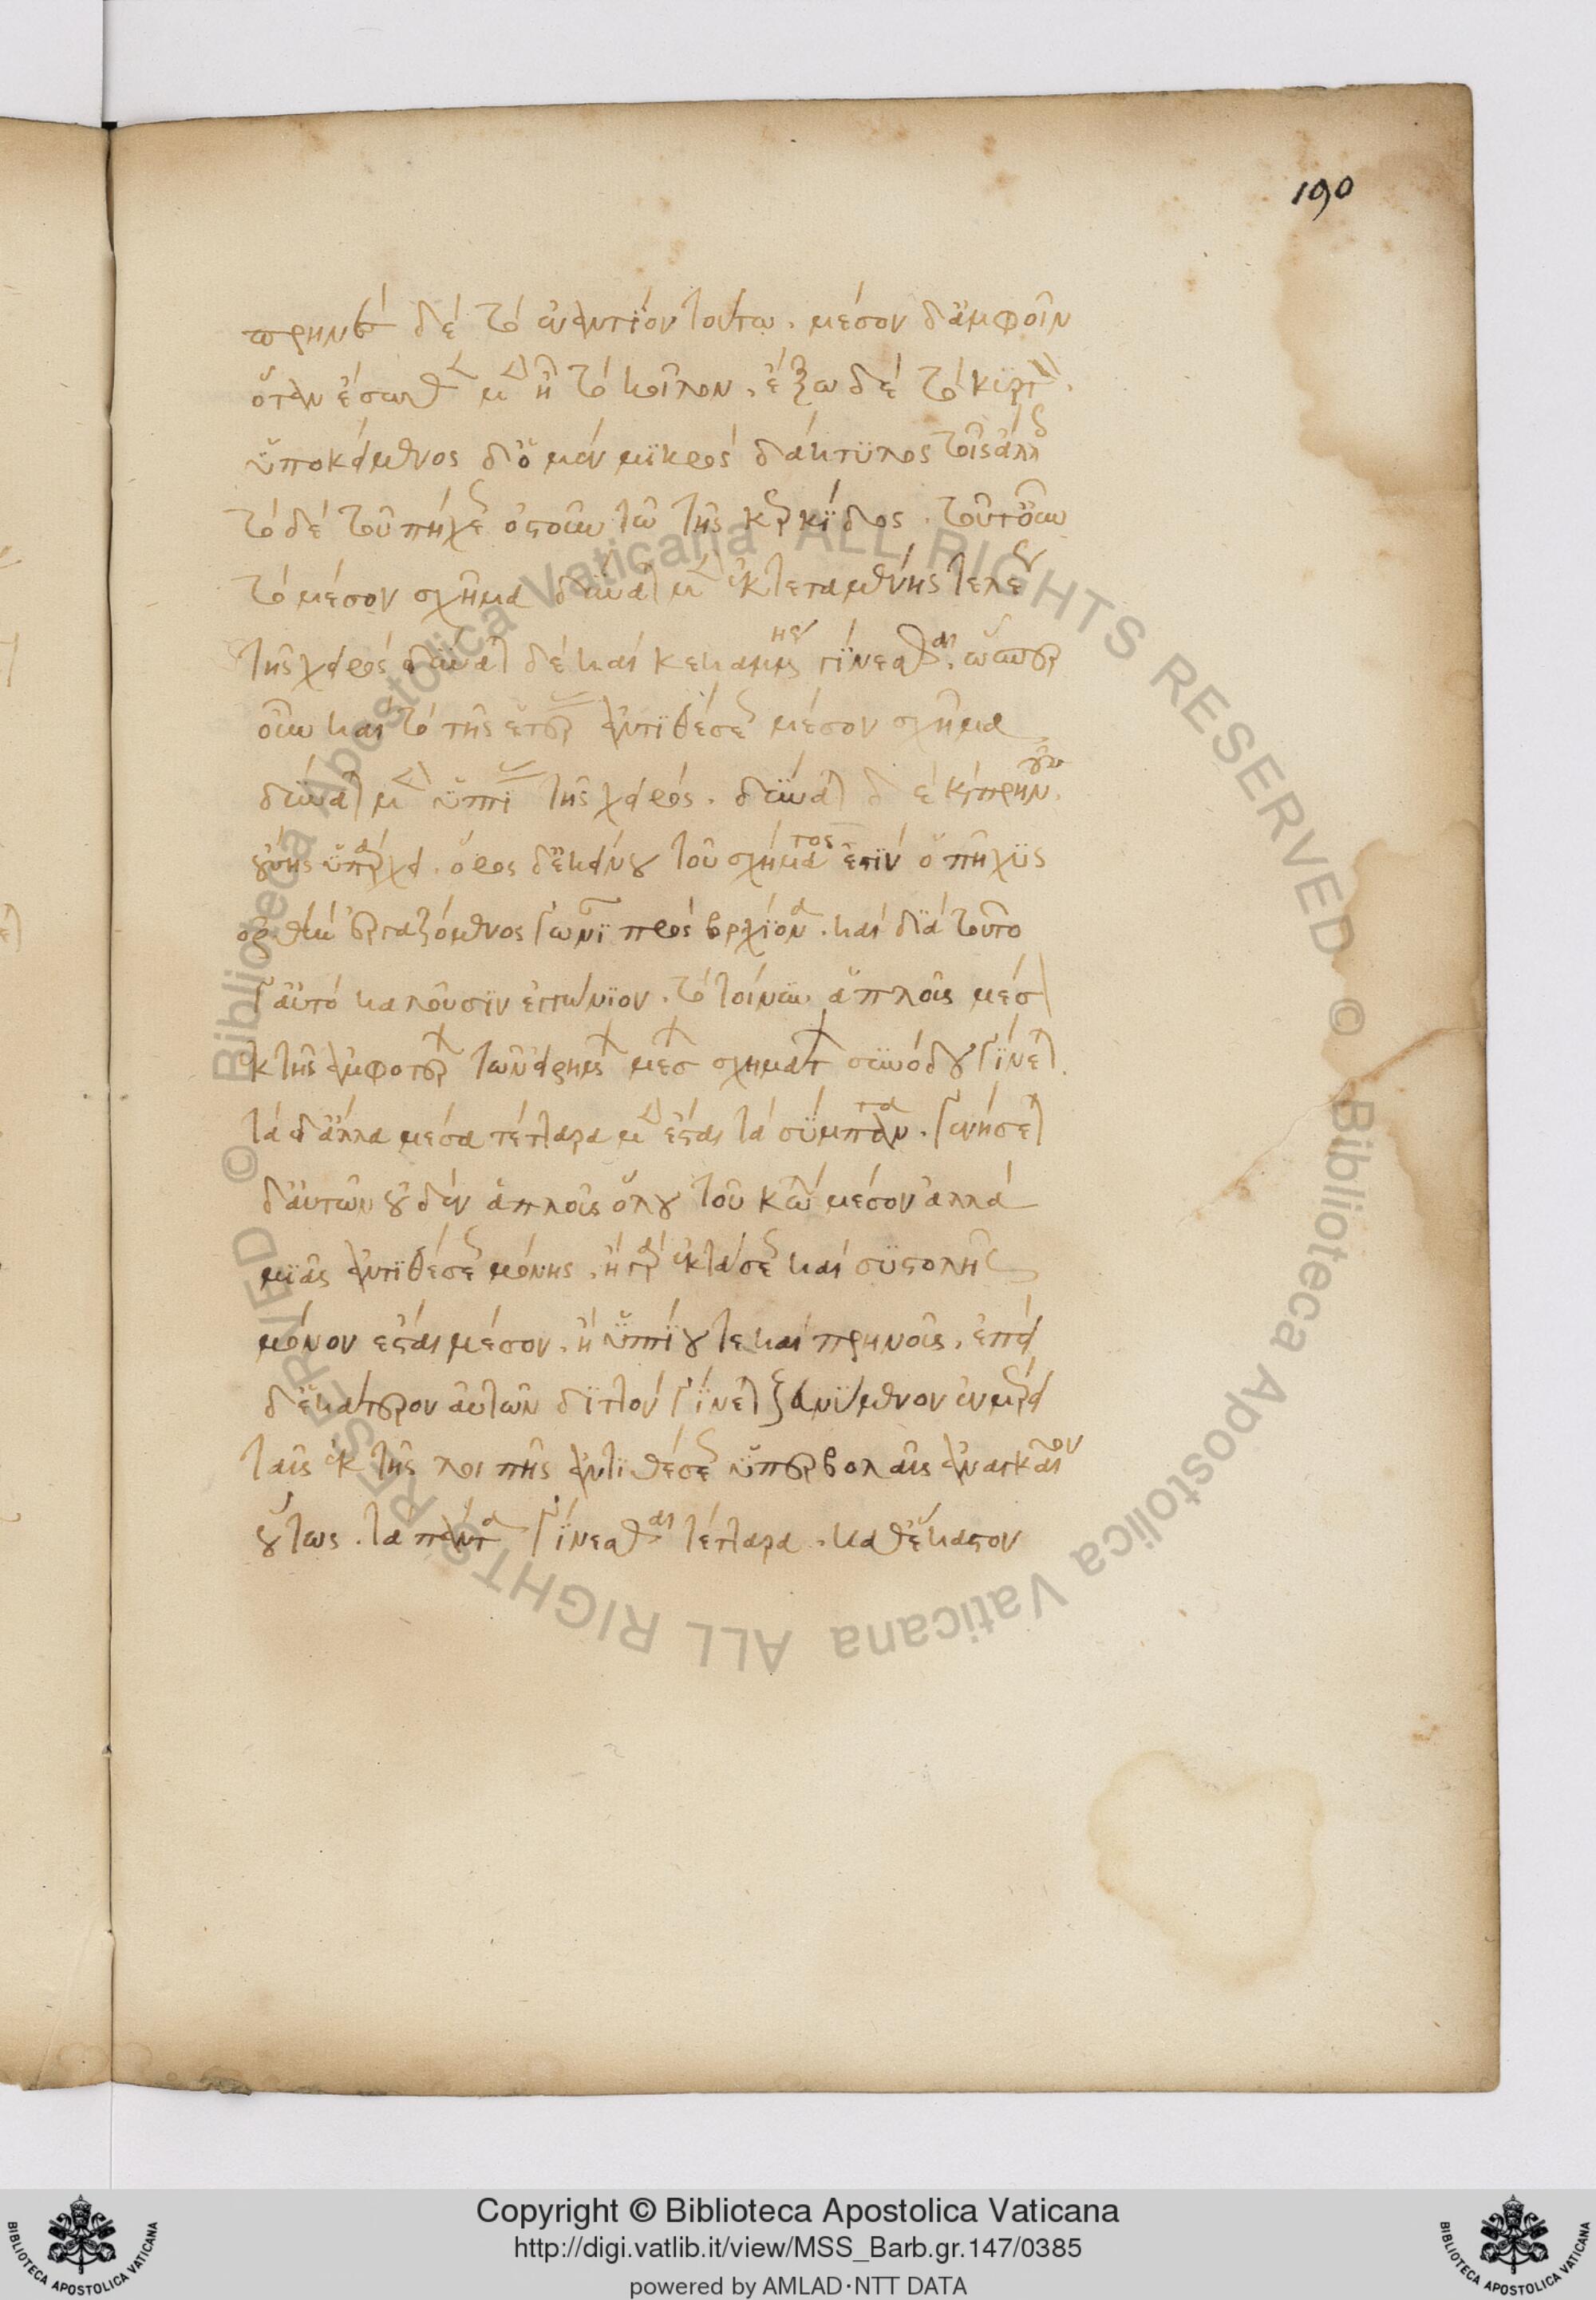 190
πρηνὲς δὲ τὸ ἐναντίον τούτω. μέσον δ' ἀμφοῖν
ὅταν ἔσωθεν μὲν ἦ τὸ κοῖλον. ἔξω δὲ τὸ κυρτόν.
ὑποκείμενος δὲ ὁ μὲν μικρὸς δάκτυλος τοῖς ἄλλοις
τὸ δὲ τοῦ πήχεως ὀστοῦν τῶ τῆς κερκίδος. τοῦτ' οὖν
τὸ μέσον σχῆμα δύναται μὲν ἐκτεταμένης τελέως
τῆς χειρὸς δύναται δὲ καὶ κεκαμμένης γίνεσθαι. ὥσπερ
οὖν καὶ τὸ τῆς ἑτέρας ἀντιθέσεως μέσον σχῆμα
δύναται μὲν ὑπτίας τῆς χειρός. δύναται δὲ κἀπὶ πρηνοῦς
ὑπάρχει. ὅρος δ' ἐκείνου τοῦ σχήματος ἐστὶν ὁ πῆχυς
ὀρθὴν ἐργαζόμενος γωνίαν πρὸς βραχίονα. καὶ διὰ τοῦτο
γ' αὐτὸ καλοῦσιν ἐγγώνιον. τὸ τοίνυν ἁπλῶς μέσον
ἐκ τῆς ἀμφοτέρων τῶν εἰρημένων μέσων σχημάτων συνόδου γίνεται.
τὰ δ' ἄλλα μέσα τέτταρα μὲν ἔσται τὰ σύμπαντα. γενήσεται
δ' αὐτῶν οὐδὲν ἁπλῶς ὅλου τοῦ κώλου μέσον ἀλλὰ
μιᾶς ἀντιθέσεως μόνης. ἢ γὰρ ἐκτάσεως καὶ συστολῆς
μόνον ἔσται μέσον. ἢ ὑπτίου τε καὶ πρηνοῦς. ἐπεὶ
δ' ἑκάτερον αὐτῶν διττὸν γίνεται ζευγνύμενον ἐν μέρει
ταῖς ἐκ τῆς λοιπῆς ἀντιθέσεως ὑπερβολαῖς ἀναγκαῖον
οὕτως. τὰ πάντα γίνεσθαι τέτταρα. καθ' ἕκαστον
Copyright © Biblioteca Apostolica Vaticana
http://digi.vatlib.it/view/MSS_Barb.gr.147/0385
powered by AMLAD·NTT DATA
BIBLIOTECA APOSTOLICA VATICANA
BIBLIOTECA APOSTOLICA VATICANA
© Biblioteca Apostolica Vaticana ALL RIGHTS RESERVED © Biblioteca Apostolica Vaticana ALL RIGHTS RESERVED